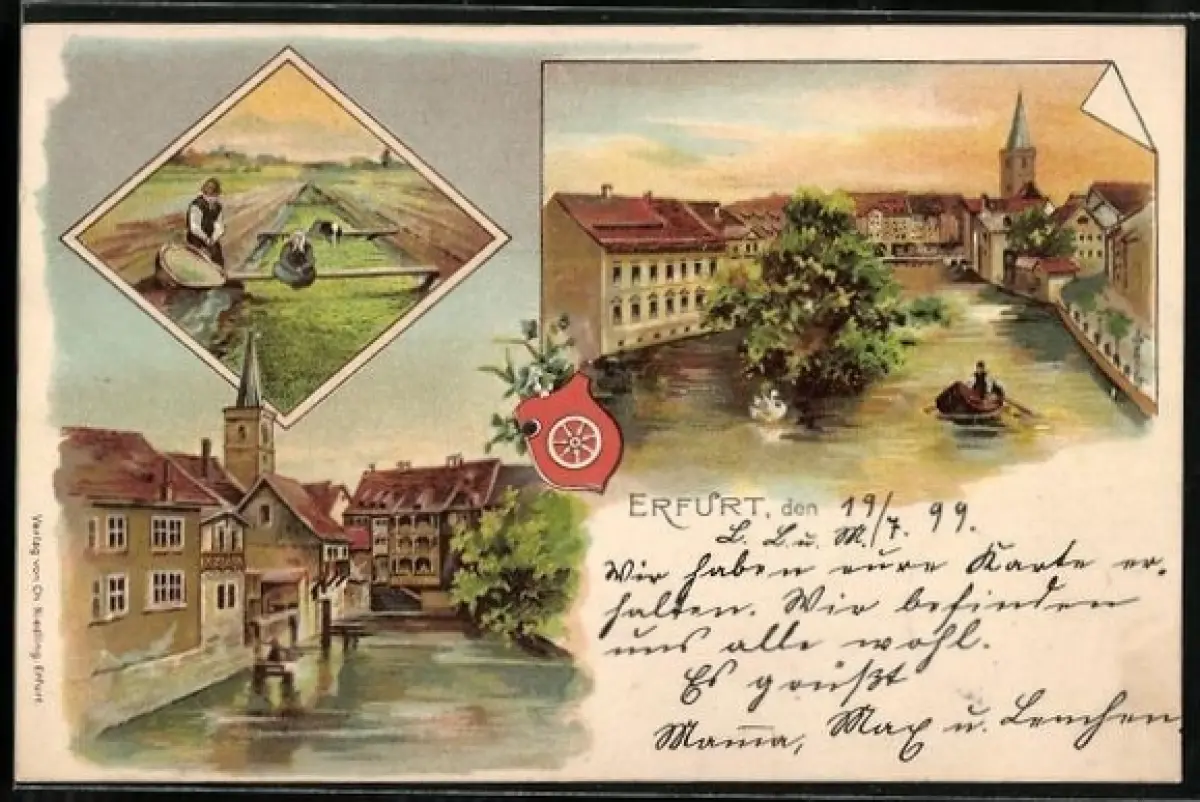 ERFURT, den 19/7. 99.
L. L. u. M.
Wir haben eure Karte er-
halten. Wir befinden
uns alle wohl.
Es grüßt
Mama, Max u. Lenchen.
Verlag von Ch. Kiesling, Erfurt